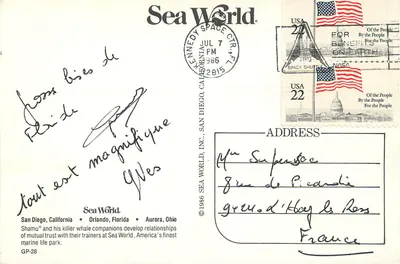 Sea World
KENNEDY SPACE CTR, FL
JUL 7
PM
1986
32815
FOR
BENEFITS
ON EARTH
USA
22
Of the People
By the People
For the People
USA
22
Of the People
By the People
For the People
Gross bises de
Floride
tout est magnifique
Yves
Sea World
San Diego, California • Orlando, Florida • Aurora, Ohio
Shamu® and his killer whale companions develop relationships
of mutual trust with their trainers at Sea World, America's finest
marine life park.
GP-28
©1986 SEA WORLD, INC., SAN DIEGO, CALIFORNIA
ADDRESS
8 rue de Picardie
France